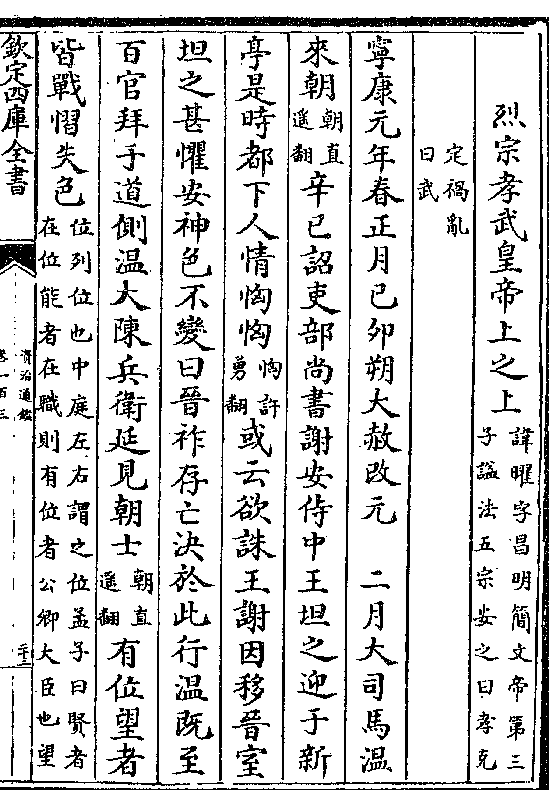 烈宗孝武皇帝上之上諱曜字昌明簡文帝第三子諡法五宗安之曰孝克
定禍亂曰武
寧康元年春正月己卯朔大赦改元　二月大司馬温
來朝朝直遥翻辛巳詔吏部尚書謝安侍中王坦之迎于新
亭是時都下人情恟恟恟許勇翻或云欲誅王謝因移晉室
坦之甚懼安神色不變曰晉祚存亡決於此行温既至
百官拜于道側温大陳兵衛延見朝士朝直遥翻有位望者
皆戰慴失色位列位也中庭左右謂之位孟子曰賢者在位能者在職則有位者公卿大臣也望
欽定四庫全書
資治通鑑
卷一百三